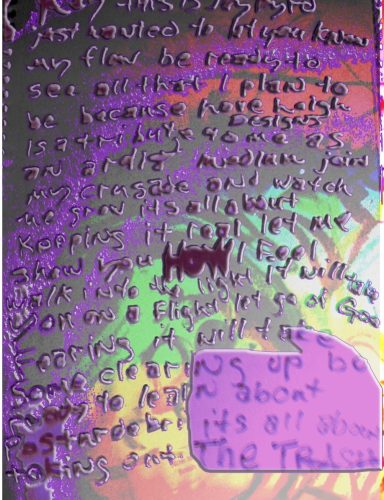 just wanted to let you know
my flow be ready to
see all that I plan to
be because
DESIGNS
Is a tribute to me as
an artist medium join
my crusade and watch
me grow its all about
Keeping it real let me
Show you HOW I Feel
walk into the light it will take
you on a Flight let go of
Fearing it will take
some clearing up be
ready to learn about
its all about
taking out The TRaSH